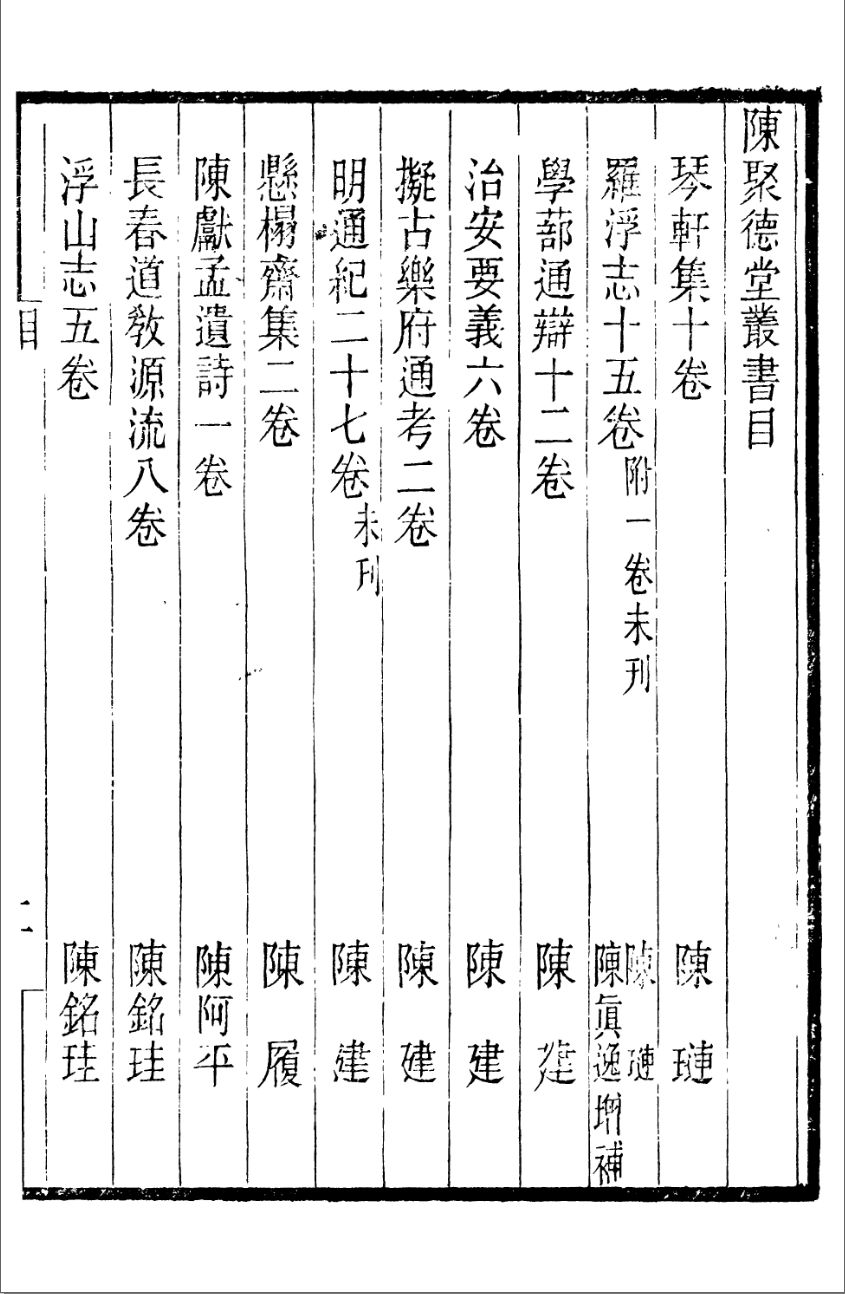 陳聚德堂叢書目
琴軒集十卷 陳璉
羅浮志十五卷 附一卷未刊 陳璉 陳眞逸增補
學蔀通辯十二卷 陳建
治安要義六卷 陳建
擬古樂府通考二卷 陳建
明通紀二十七卷 未刊 陳建
懸榻齋集二卷 陳履
陳獻孟遺詩一卷 陳阿平
長春道敎源流八卷 陳銘珪
浮山志五卷 陳銘珪
目